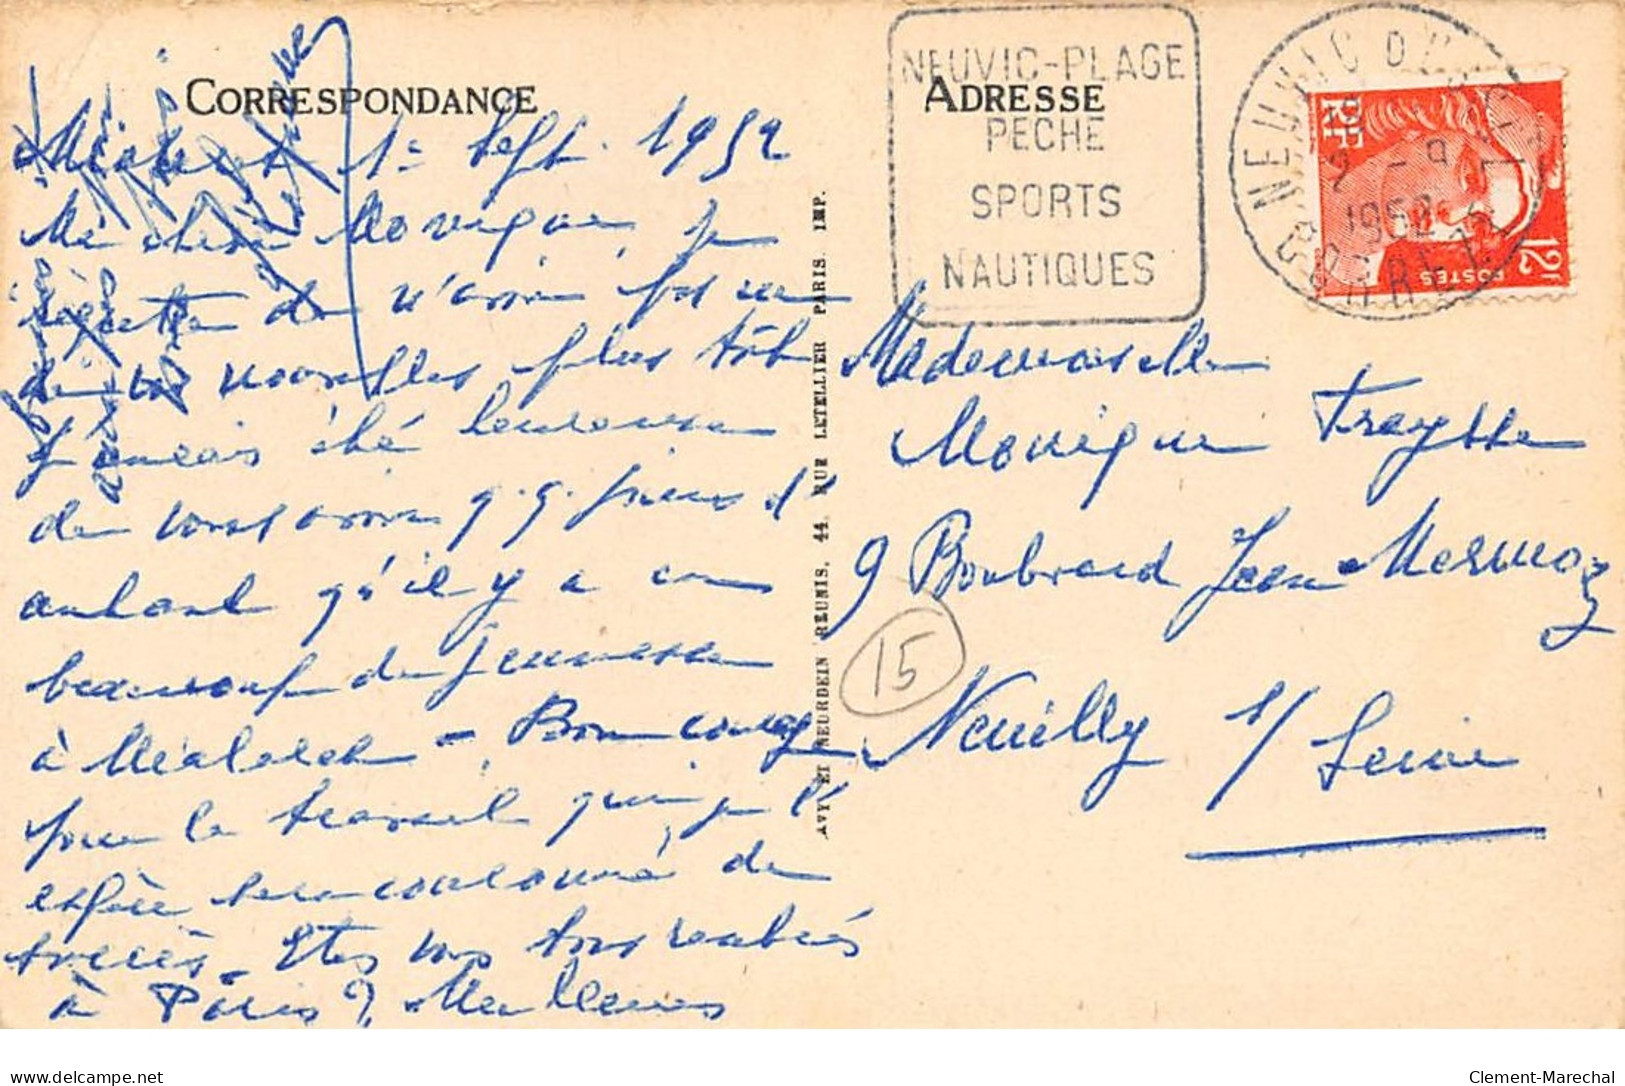 CORRESPONDANCE
1er Sept. 1952
Ma chère Monique, je
regrette de n'avoir pas eu
de vos nouvelles plus tôt
j'aurais été heureuse
de vous avoir q.q. jours d'
autant qu'il y a eu
beaucoup de jeunesse
à Mialaret - Bon courage
pour le travail que je l'
espère sera couronné de
succès - Etes vous tous rentrés
à Paris ? Meilleures
AVY ET NEURDEIN RÉUNIS, 44, RUE LETELLIER PARIS. IMP.
NEUVIC-PLAGE
PECHE
SPORTS
NAUTIQUES
ADRESSE
NEUVIC D'USSEL
2 - 9
1952
CORREZE
RF
POSTES
12F
Mademoiselle
Monique Treysse
9 Boulevard Jean Mermoz
Neuilly s/ Seine
15
www.delcampe.net
Clement-Marechal